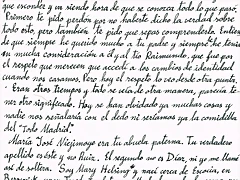 que esconder y va siendo hora de que se conozca todo lo que pasó.
Primero te pido perdón por no haberte dicho la verdad sobre
todo esto, pero también te pido que sepas comprenderla. Entien-
de que siempre he querido mucho a tu padre y siempre he tenido
su mucha consideración a él y al tío Raimundo, que fue por
el respeto que merecen que accedí a los cambios de identidad
cuando nos casamos. Pero hoy el respeto lo veo desde otro punto.
Eran otros tiempos y todo se veía de otra manera, parecía te-
ner otro significado. Hoy se han olvidado ya muchas cosas y
nadie nos señalaría con el dedo ni seríamos ya la comidilla
del "Todo Madrid".
María José Viejimoyo era tu abuela paterna. Tu verdadero
apellido es éste y no Ruiz. El segundo no es Díaz, ni yo me llamé
así de soltera. Soy Mary Helsing y nací cerca de Escocia, en